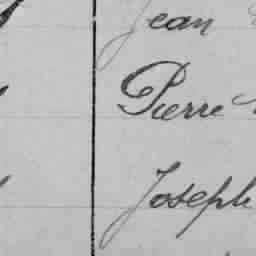 Jean
Pierre
Joseph